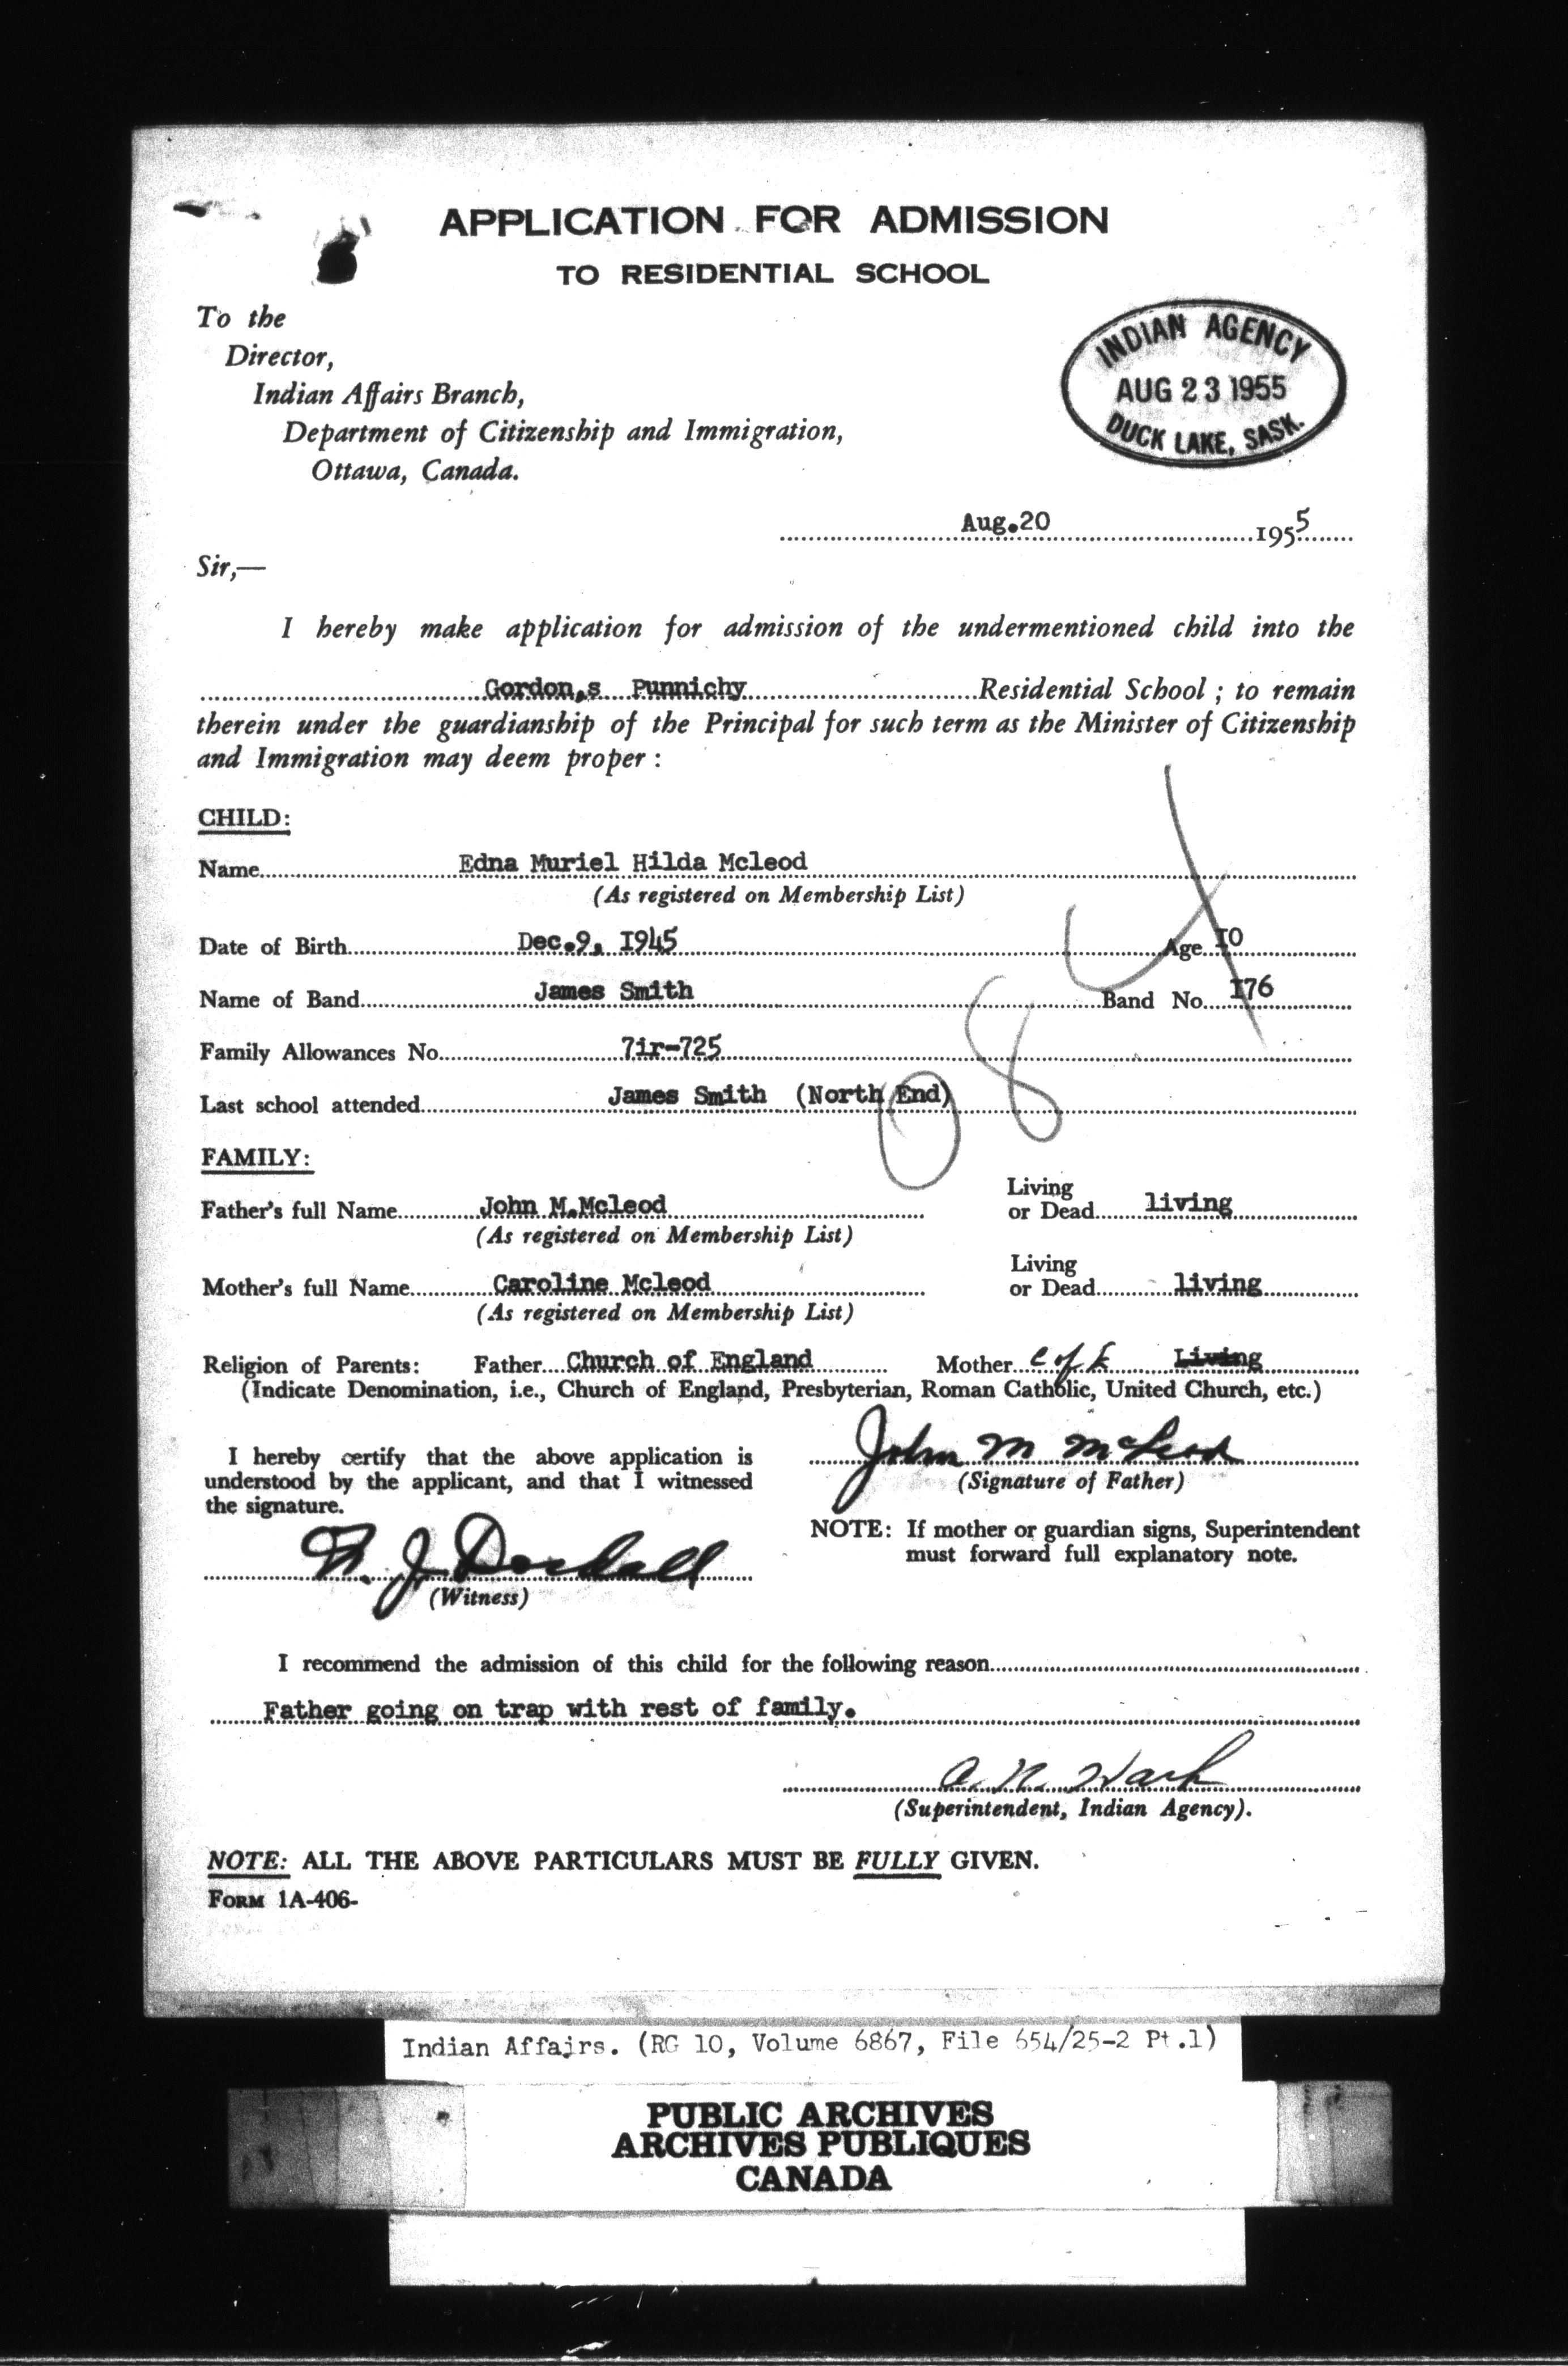 APPLICATION FOR ADMISSION
TO RESIDENTIAL SCHOOL
To the
Director,
Indian Affairs Branch,
Department of Citizenship and Immigration,
Ottawa, Canada.
INDIAN AGENCY
AUG 23 1955
DUCK LAKE, SASK.
Aug.20 1955
Sir,—
I hereby make application for admission of the undermentioned child into the
Gordon,s Punnichy Residential School ; to remain
therein under the guardianship of the Principal for such term as the Minister of Citizenship
and Immigration may deem proper :
CHILD:
Name Edna Muriel Hilda Mcleod
(As registered on Membership List)
Date of Birth Dec.9, I945 Age I0
Name of Band James Smith Band No. I76
Family Allowances No. 7ir-725
Last school attended James Smith (North End)
084
FAMILY:
Father's full Name John M.Mcleod Living or Dead living
(As registered on Membership List)
Mother's full Name Caroline Mcleod Living or Dead living
(As registered on Membership List)
Religion of Parents: Father Church of England Mother C of E Living
(Indicate Denomination, i.e., Church of England, Presbyterian, Roman Catholic, United Church, etc.)
I hereby certify that the above application is
understood by the applicant, and that I witnessed
the signature.
John M McLeod
(Signature of Father)
NOTE: If mother or guardian signs, Superintendent
must forward full explanatory note.
(Witness)
I recommend the admission of this child for the following reason
Father going on trap with rest of family.
(Superintendent, Indian Agency).
NOTE: ALL THE ABOVE PARTICULARS MUST BE FULLY GIVEN.
FORM 1A-406-
Indian Affairs. (RG 10, Volume 6867, File 654/25-2 Pt.1)
PUBLIC ARCHIVES
ARCHIVES PUBLIQUES
CANADA